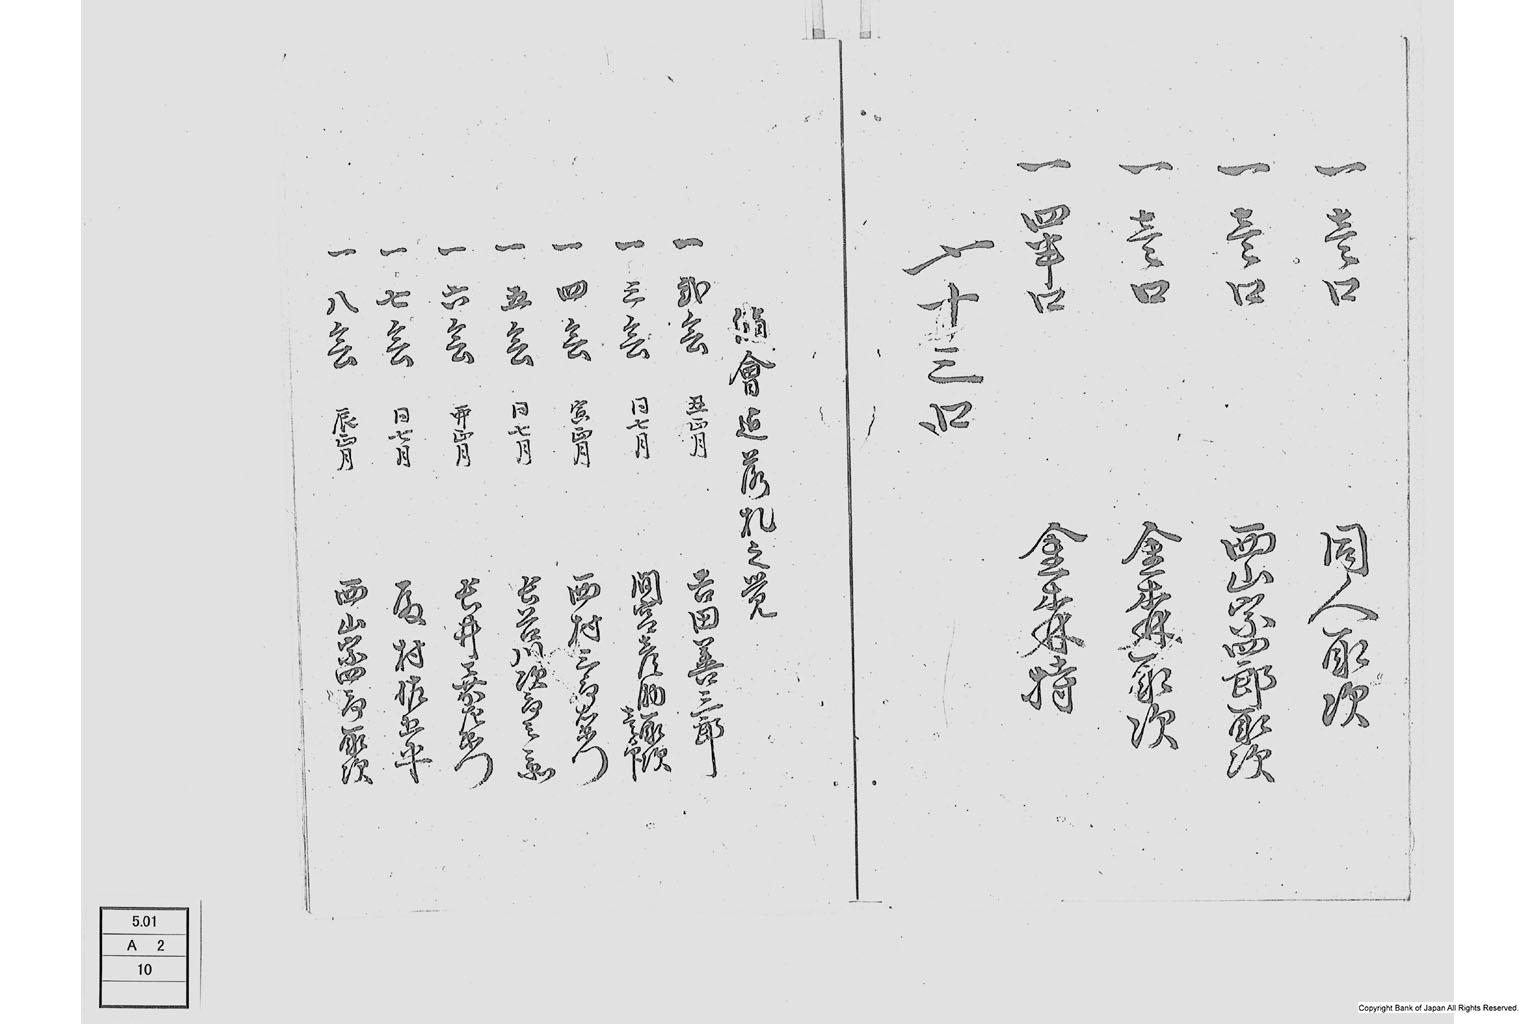 一 壱口 同人取次
一 壱口 西山宗四郎取次
一 壱口 金森取次
一 四半口 金森持
〆十三口
會迄落札之覚
一 弐会 丑正月 吉田善三郎
一 三会 同七月 間宮彦 取次
一 四会 寅正月 西村三郎右衛門
一 五会 同七月 長谷川次郎兵衛
一 六会 卯正月 長井 左衛門
一 七会 同七月 村佐五平
一 八会 辰正月 西山宗四郎取次
5.01
A 2
10
Copyright Bank of Japan All Rights Reserved.